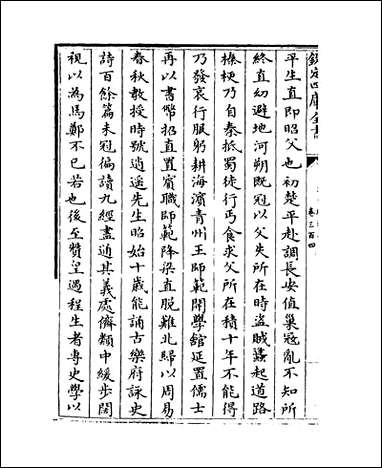 欽定四庫全書
卷三百四
平生直即昭父也初楚平赴調長安值巢冦亂不知所
終直幼避地河朔既冠以父失所在時盜賊蠭起道路
榛梗乃自秦抵蜀徒行丐食求父所在積十年不能得
乃發哀行服躬耕海濵青州王師範開學館延置儒士
再以書幣招直置賓職師範降梁直脱難北歸以周易
春秋教授時號逍遙先生昭始十歲能誦古樂府詠史
詩百餘篇未冠徧讀九經盡通其義處儕類中緩步闊
視以為馬鄭不已若也後至贊皇遇程生者專史學以